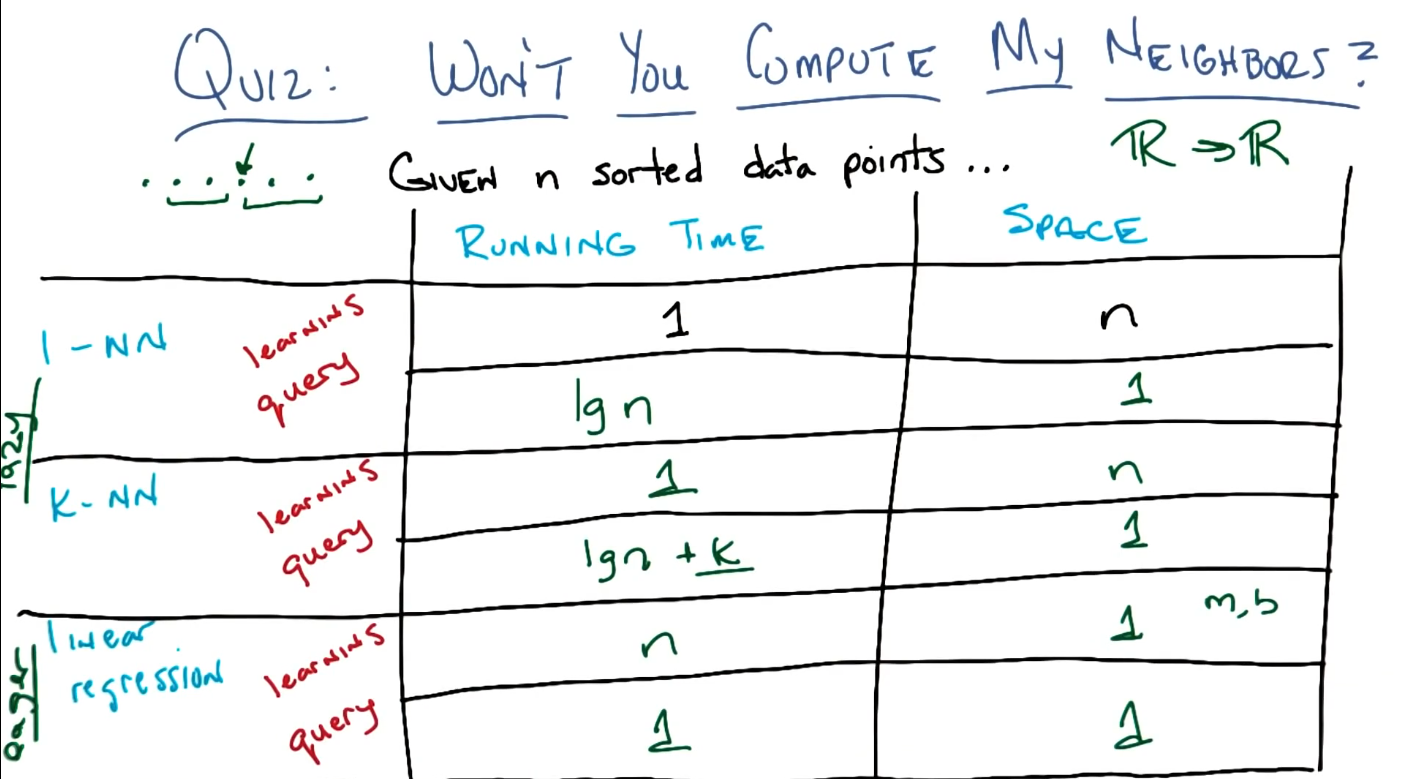 QUIZ: WON'T YOU COMPUTE MY NEIGHBORS?
GIVEN n sorted data points ... ℝ → ℝ
RUNNING TIME SPACE
1-NN learning 1 n
query lg n 1
lazy
K-NN learning 1 n
query lgn + k 1
linear regression learning n 1 m,b
query 1 1
eager